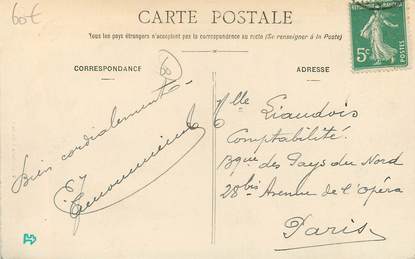 60€
CARTE POSTALE
Tous les pays étrangers n'acceptent pas la correspondance au recto (Se renseigner à la Poste)
CORRESPONDANCE
ADRESSE
60
5c
Bien cordialement
Mlle Liaudois
Comptabilité.
Bque des Pays du Nord
28bis Avenue de l'Opéra
Paris